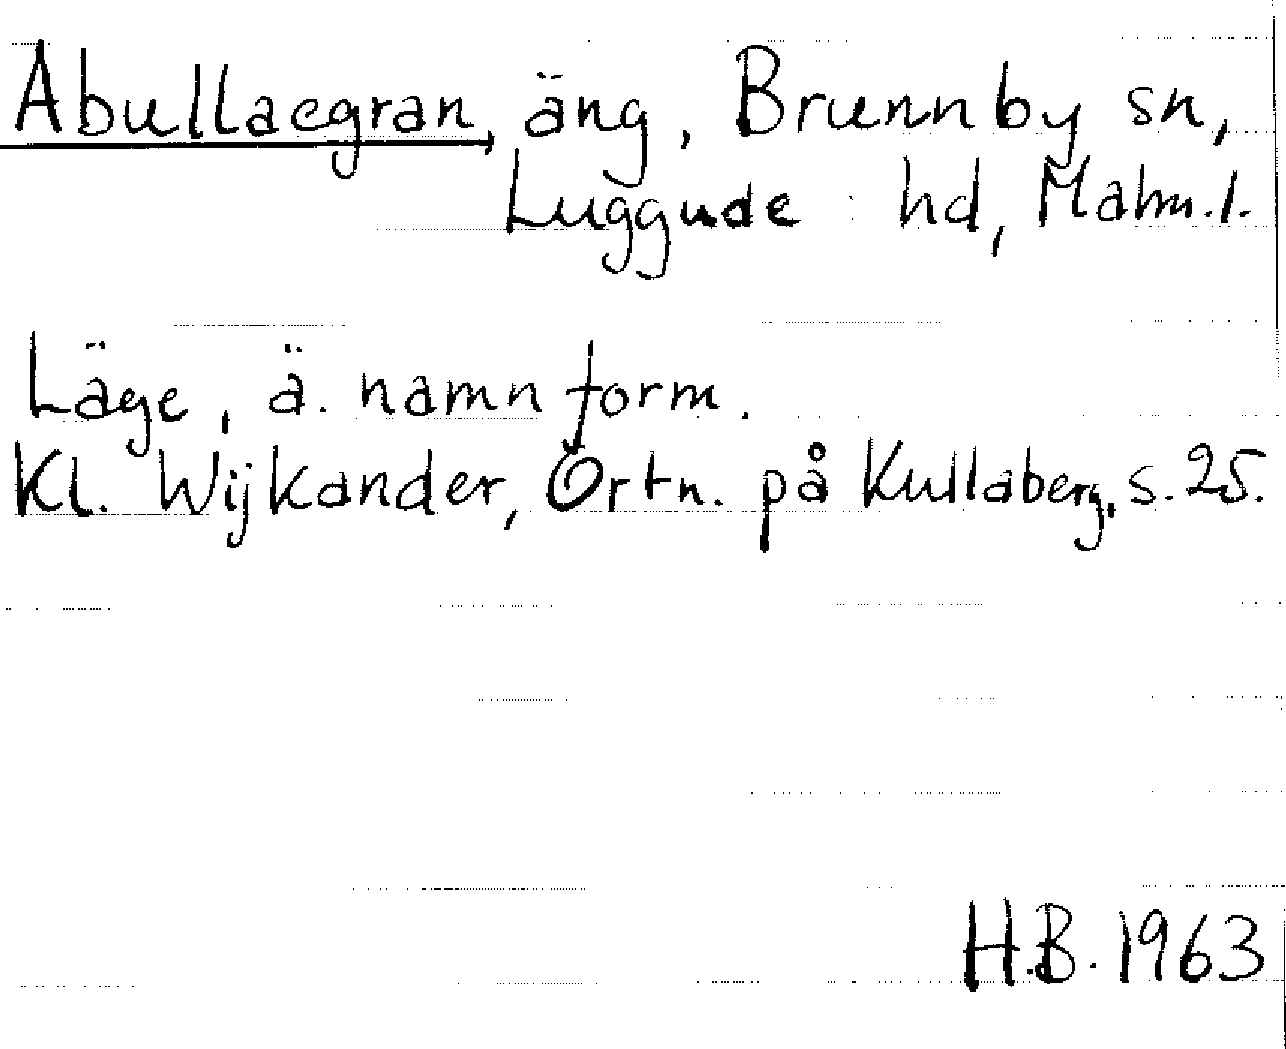 Abullaegran, äng, Brunnby sn,
Luggude hd, Malm.l.
Läge, ä. namnform.
Kl. Wijkander, Ortn. på Kullaberg, s. 25.
H.B. 1963